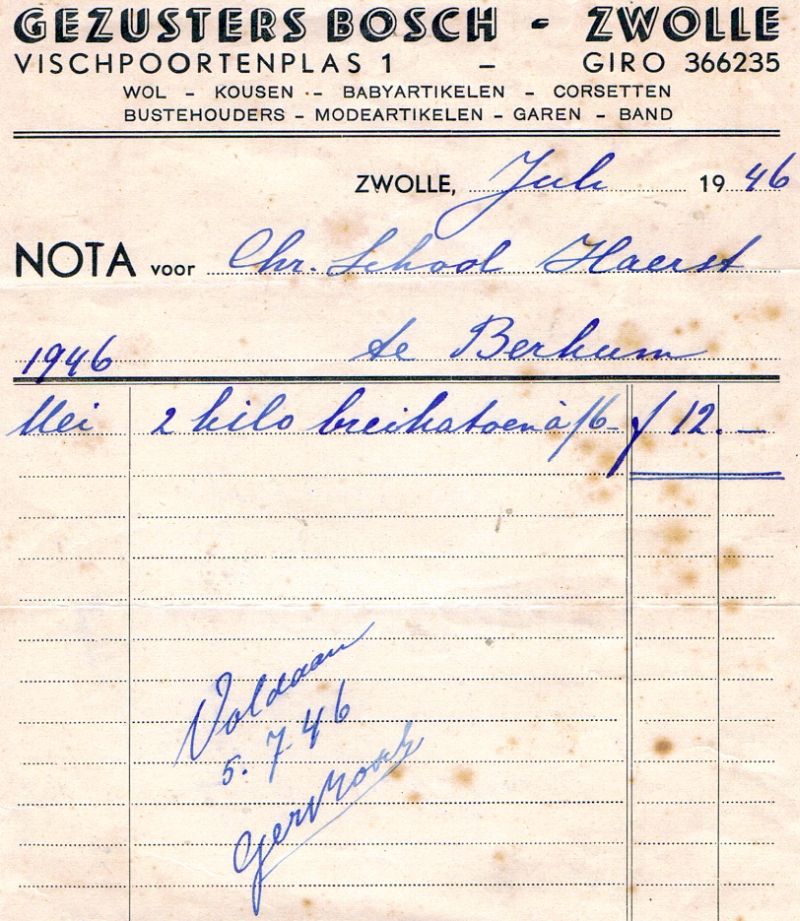 GEZUSTERS BOSCH - ZWOLLE
VISCHPOORTENPLAS 1 - GIRO 366235
WOL - KOUSEN - BABYARTIKELEN - CORSETTEN
BUSTEHOUDERS - MODEARTIKELEN - GAREN - BAND
ZWOLLE, Juli 1946
NOTA voor Chr. School Haerst
1946 te Berkum
Mei 2 kilo breikatoen à 6- f 12.-
Voldaan
5.7.46
Gez Bosch